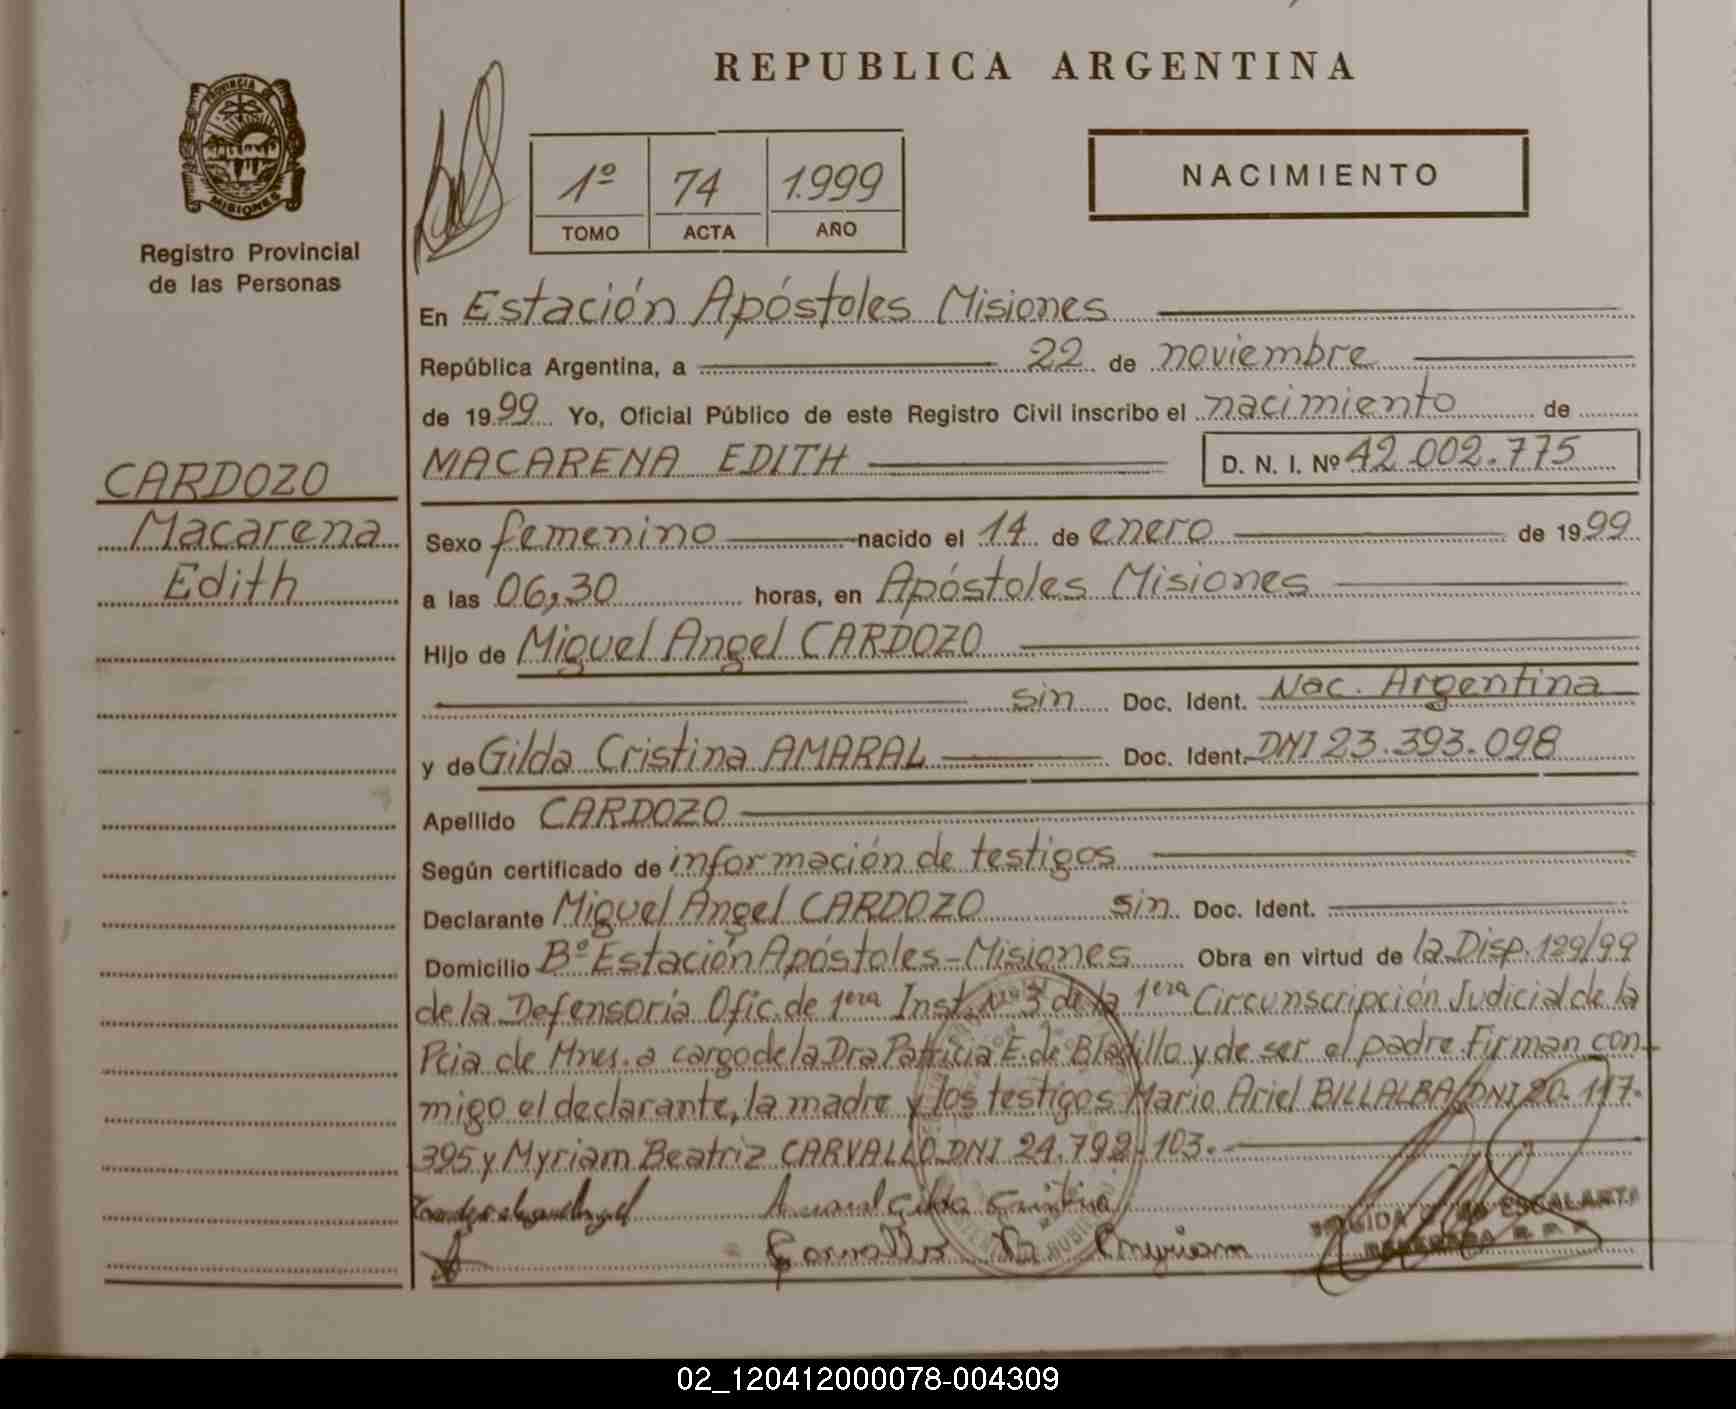 REPUBLICA ARGENTINA
PROVINCIA DE
MISIONES
Registro Provincial
de las Personas
1º 74 1.999
TOMO ACTA AÑO
NACIMIENTO
En Estación Apóstoles Misiones
República Argentina, a 22 de noviembre
de 1999 Yo, Oficial Público de este Registro Civil inscribo el nacimiento de
MACARENA EDITH D. N. I. Nº 42.002.775
CARDOZO
Macarena
Edith
Sexo femenino nacido el 14 de enero de 1999
a las 06,30 horas, en Apóstoles Misiones
Hijo de Miguel Angel CARDOZO
sin Doc. Ident. Nac. Argentina
y de Gilda Cristina AMARAL Doc. Ident. DNI 23.393.098
Apellido CARDOZO
Según certificado de información de testigos
Declarante Miguel Angel CARDOZO sin Doc. Ident.
Domicilio Bº Estación Apóstoles-Misiones Obra en virtud de la Disp. 129/99
de la Defensoría Ofic. de 1era Inst. 3 de la 1era Circunscripción Judicial de la
Pcia de Mnes. a cargo de la Dra Patricia E. de y de ser el padre. Firman con-
migo el declarante, la madre y los testigos Mario Ariel BILLALBA DNI 20.117.
395 y Myriam Beatriz CARVALLO DNI 24.792.103.-
Amaral Gilda Cristina
Carvallo Myriam
ESCALANTE
02_120412000078-004309